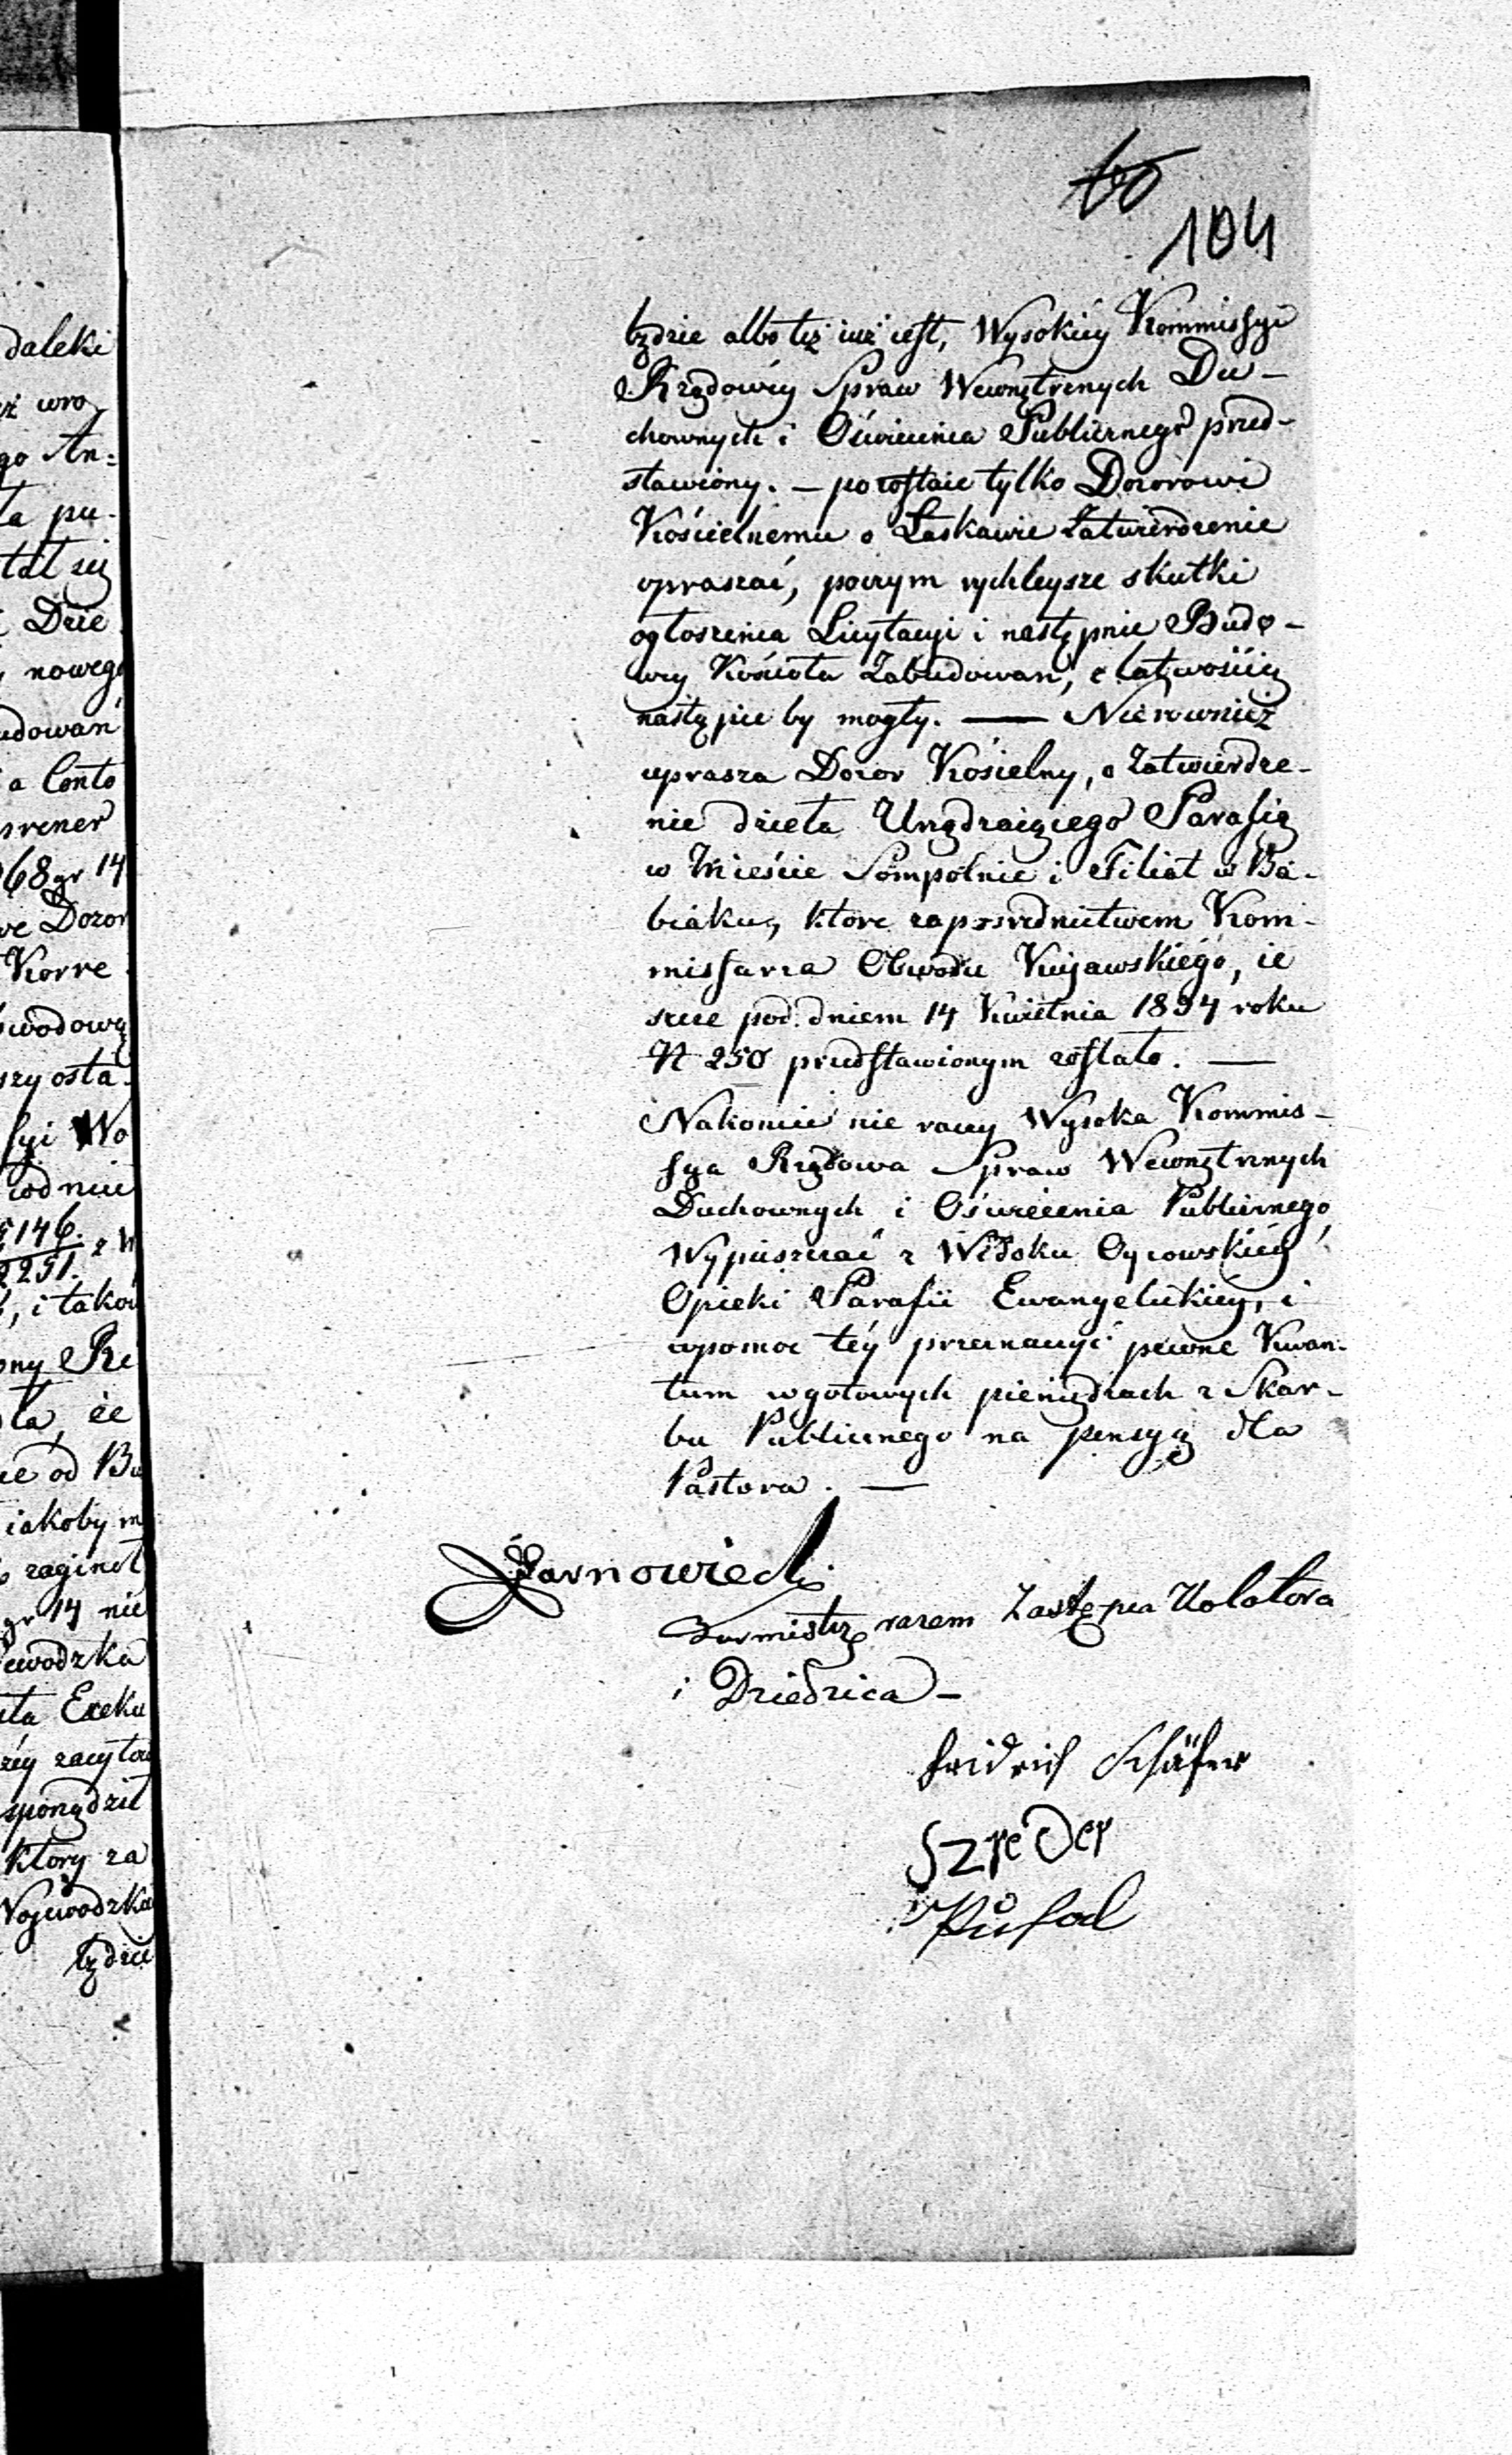 104
będzie albo też iuż iest, Wysokiéy Kommissyi
Rządowéy Spraw Wewnętrznych Du-
chownych i Oświecenia Publicznego przed-
stawiony. — pozostaie tylko Dozorowi
Kościelnemu o Łaskawe Zatwierdzenie
upraszać, poczym rychleysze skutki
ogłoszenia Licytacyi i następnie Budo-
wy Kościoła Zabudowań, z łatwością
nastąpić by mogły. — Nierownież
uprasza Dozor Kościelny, o Zatwierdze-
nie dzieła Urządzaiącego Parafią
w Mieście Sompolnie i Filiał w Ba-
biaku, ktore zaposrednictwem Kom-
missarza Obwodu Kujawskiego, ie
szcze pod dniem 14 Kwietnia 1834 roku
N 250 przedstawionym zostało. —
Nakoniec nie raczy Wysoka Kommis-
sya Rządowa Spraw Wewnętrznych
Duchownych i Oświecenia Publicznego
Wypuszczać z Widoku Oycowskiéy
Opieki Parafii Ewangelickiéy, i
wpomoc téy przeznaczyć pewne Kwan-
tum wgotowych pieniądzach z Skar-
bu Publicznego na pensyą dla
Pastora. —
Żarnowiecki
Burmistrz razem Zastępca Kolatora
i Dziedzica —
Fridrich Schäfer
Szreder
Pufal
daleki
wro
go An=
ła pu-
Dzie
nowego
udowań
a Conto
68 gr 14
Dozor
Korre
wodową
szy osta-
syi Wo
146.
2251.
i takow
ony Re
ła, że
ie od Bu
iakoby m
zaginoł
gr 14 nie
ewodzka
Exeku
réy zacytow
sporządził
ktory za
Wojewodzka
będzie